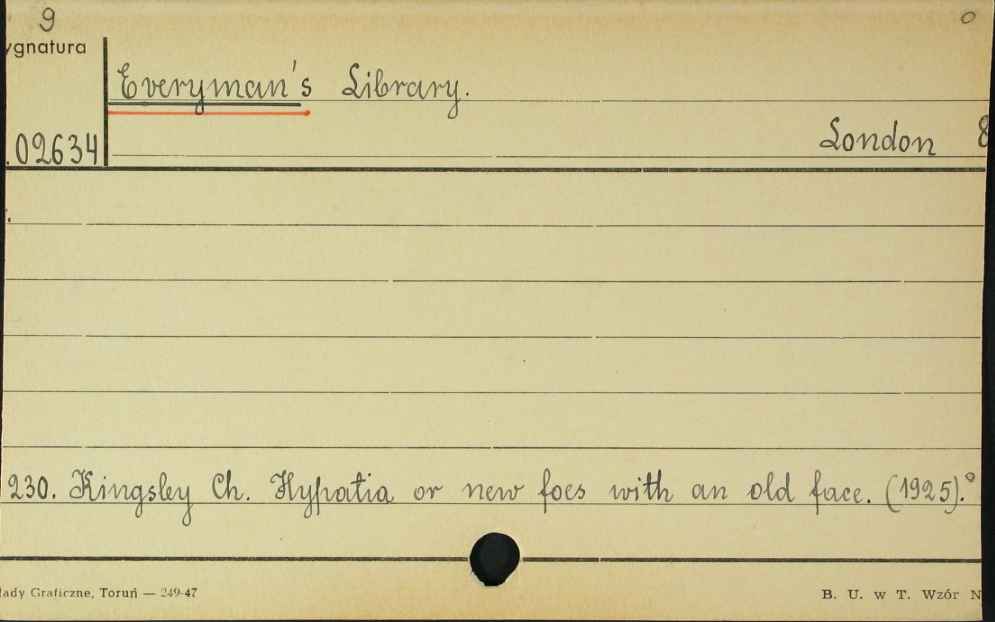 9
ygnatura
Everyman's Library.
.02634
London 8
230. Kingsley Ch. Hypatia or new foes with an old face. (1925).°
ady Graficzne, Toruń — 249-47
B. U. w T. Wzór N